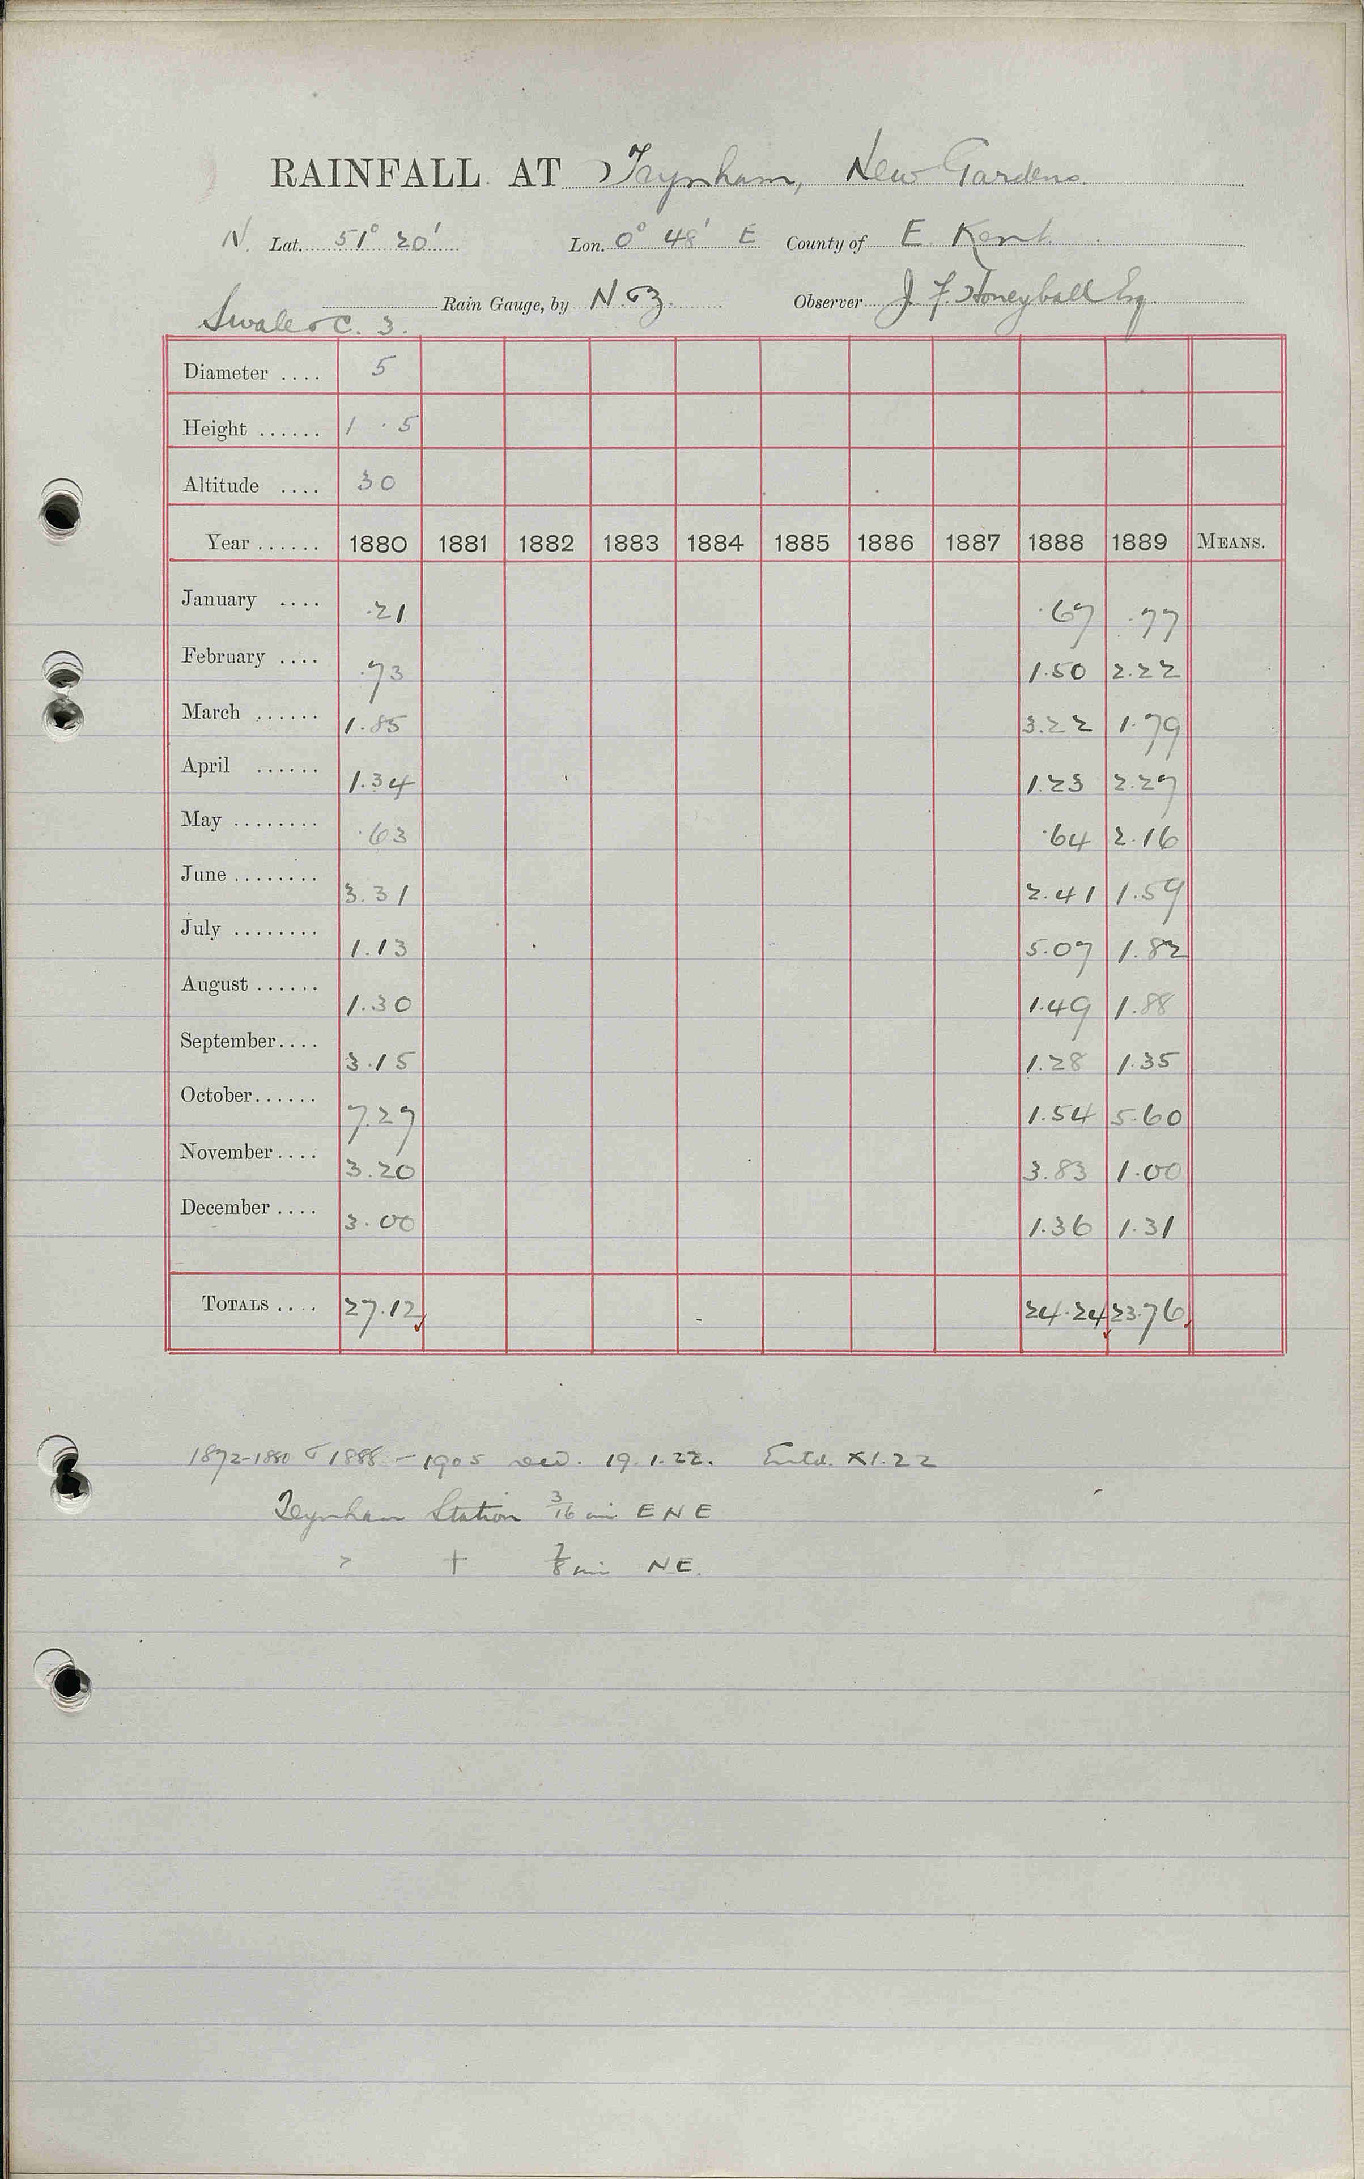 RAINFALL AT Teynham, New Gardens.
N. Lat. 51° 20' Lon. 0° 48' E County of E. Kent
Rain Gauge, by N. & Z. Observer J. F. Honeyball Esq
Swale & C. 3.
Diameter .... 5
Height ...... 1 . 5
Altitude .... 30
Year ...... 1880 1881 1882 1883 1884 1885 1886 1887 1888 1889 MEANS.
January .... .21 .67 .77
February .... .73 1.50 2.22
March ...... 1.85 3.22 1.79
April ...... 1.34 1.23 2.27
May ........ .63 .64 2.16
June ........ 3.31 2.41 1.59
July ........ 1.13 5.07 1.82
August ...... 1.30 1.49 1.88
September.... 3.15 1.28 1.35
October...... 7.27 1.54 5.60
November.... 3.20 3.83 1.00
December.... 3.00 1.36 1.31
TOTALS .... 27.12 24.24 23.76
1872-1880 & 1888-1905 recd. 19.1.22. Entd. XI.22
Teynham Station 3/16 mi ENE
" + 7/8 mi NE.